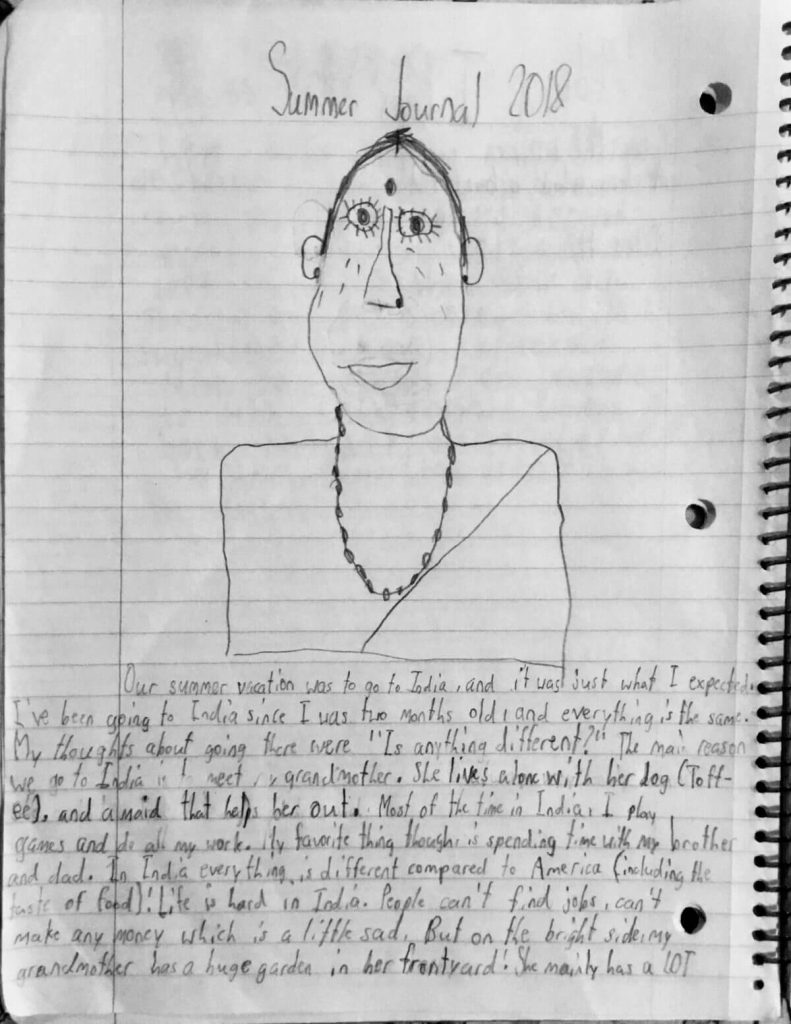 Summer Journal 2018
Our summer vacation was to go to India, and it was just what I expected.
I've been going to India since I was two months old, and everything is the same.
My thoughts about going there were "Is anything different?" The main reason
we go to India is to meet my grandmother. She lives alone with her dog (Toff-
ee), and a maid that helps her out. Most of the time in India, I play
games and do all my work. My favorite thing though, is spending time with my brother
and dad. In India everything is different compared to America (including the
taste of food)! Life is hard in India. People can't find jobs, can't
make any money which is a little sad. But on the bright side, my
grandmother has a huge garden in her frontyard! She mainly has a LOT